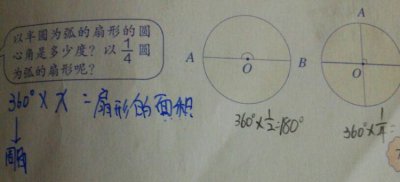 以半圆为弧的扇形的圆
心角是多少度?以1/4圆
为弧的扇形呢?
A
O
B
A
O
360°×π=扇形的面积
周角
360°×1/2=180°
360°×1/4=